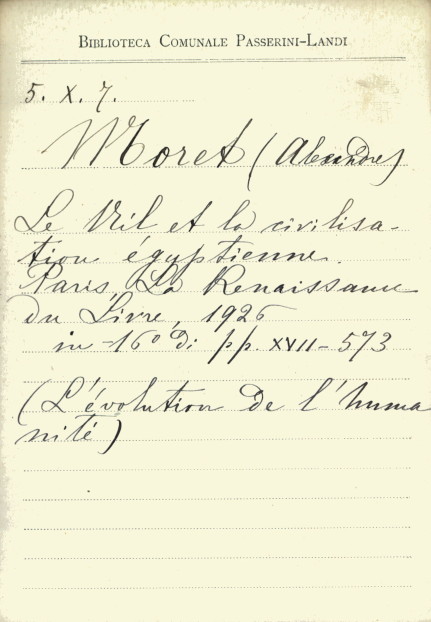 BIBLIOTECA COMUNALE PASSERINI-LANDI
5. X. 7.
Moret (Alexandre)
Le Nil et la civilisa-
tion égyptienne.
Paris, La Renaissance
du Livre, 1926
in-16° di pp. XVII-573
(L'évolution de l'huma
nité)